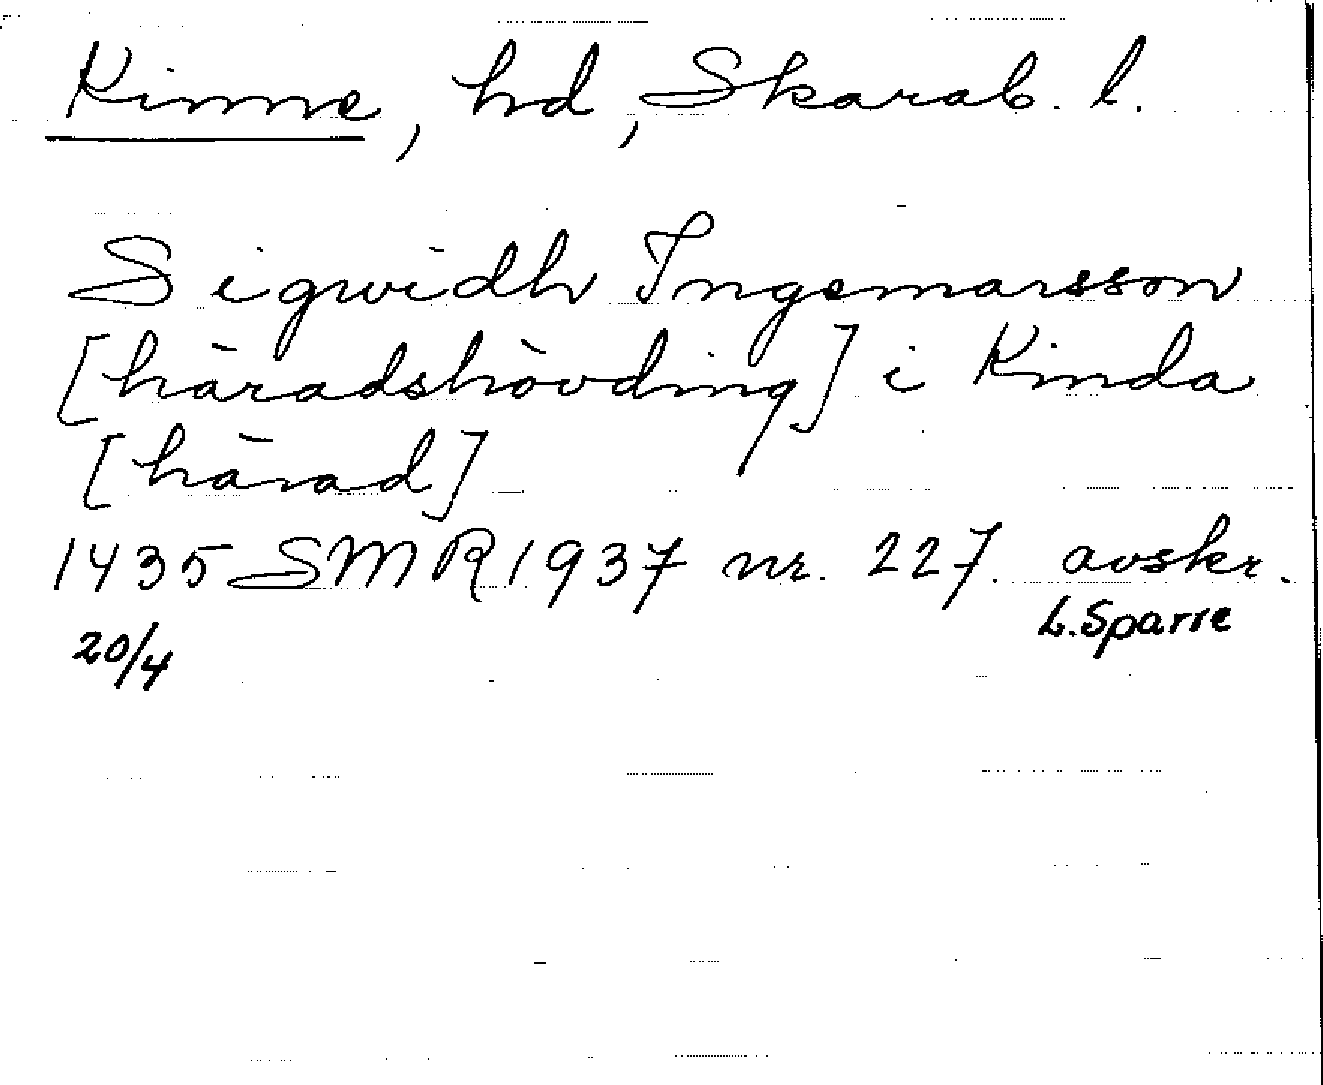 Kinne, hd, Skarab. l.
Sigwidh Ingemarsson
[häradshövding] i Kinda
[härad]
1435 SMR 1937 nr. 227. avskr.
20/4 L. Sparre